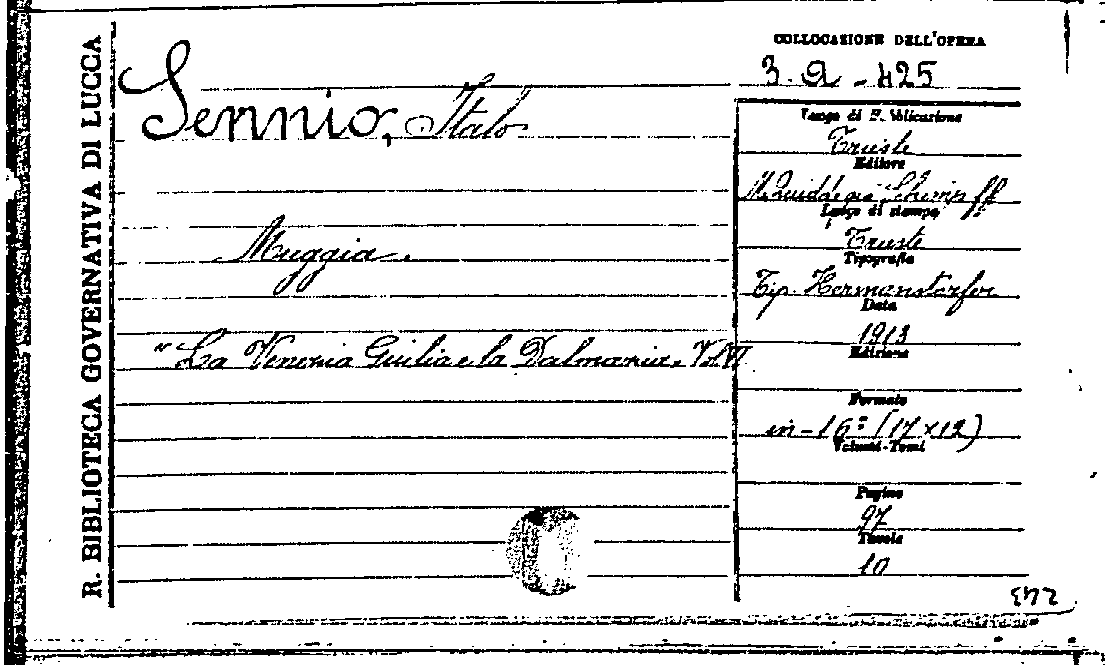 R. BIBLIOTECA GOVERNATIVA DI LUCCA
COLLOCAZIONE DELL'OPERA
3. a - 425
Sennio, Italo
Muggia.
"La Venezia Giulia e la Dalmazia, Vol. VI
Luogo di Pubblicazione
Trieste
Editore
M. Quidde già Schimpff
Luogo di stampa
Trieste
Tipografia
Tip. Hermanstorfer
Data
1913
Edizione
Formato
in-16º (17x12)
Volumi-Tomi
Pagine
97
Tavole
10